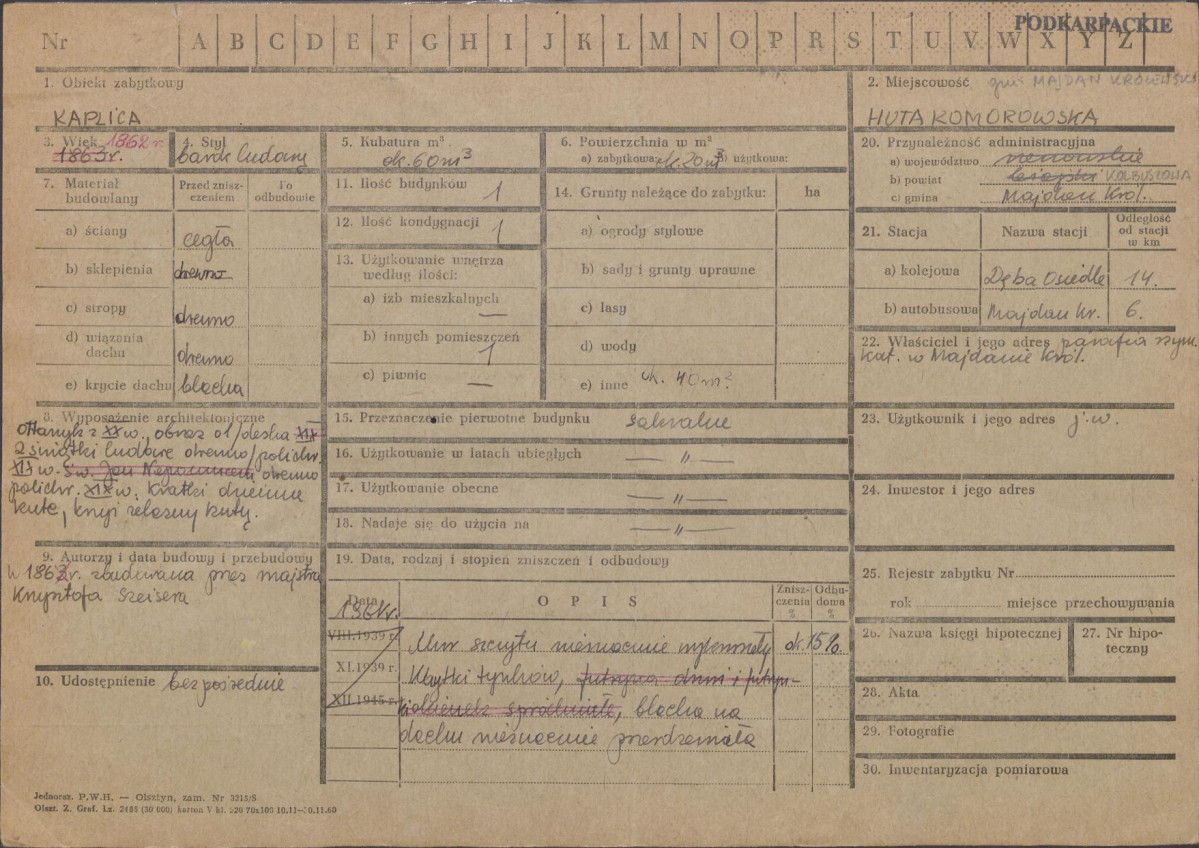 PODKARPACKIE
Nr A B C D E F G H I J K L M N O P R S T U V W X Y Z
1. Obiekt zabytkowy
KAPLICA
2. Miejscowość gm. MAJDAN KRÓLEWSKI
HUTA KOMOROWSKA
3. Wiek 1862 r.
1863 r.
4. Styl
barok ludowy
5. Kubatura m³
ok. 60 m³
6. Powierzchnia w m²
a) zabytkowa: ok. 20 m² b) użytkowa:
7. Materiał budowiany
Przed znisz-czeniem
Po odbudowie
a) ściany cegła
b) sklepienia drewno
c) stropy drewno
d) wiązania dachu drewno
e) krycie dachu blacha
8. Wyposażenie architektoniczne
ołtarzyk z XX w., obraz ol/deska XIX
2 świątki ludowe drewno/polichr.
XIX w. Św. Jan Nepomucen drewno
polichr. XIX w. Kratki
kute, krzyż żelazny kuty.
9. Autorzy i data budowy i przebudowy
W 1862 r. zbudowana przez majstra
Krzysztofa Szeisera
10. Udostępnienie bezpośrednie
11. Ilość budynków 1
12. Ilość kondygnacji 1
13. Użytkowanie wnętrza
według ilości:
a) izb mieszkalnych —
b) innych pomieszczeń 1
c) piwnic —
14. Grunty należące do zabytku: ha
a) ogrody stylowe
b) sady i grunty uprawne
c) lasy
d) wody
e) inne ok. 40 m²
15. Przeznaczenie pierwotne budynku sakralne
16. Użytkowanie w latach ubiegłych — " —
17. Użytkowanie obecne — " —
18. Nadaje się do użycia na — " —
19. Data, rodzaj i stopień zniszczeń i odbudowy
Data OPIS Znisz-czenia % Odbu-dowa %
1961 r.
VIII.1939 r. Mur szczytu nieznacznie ok. 15%.
XI.1939 r. ubytki tynków, futryna drzwi i futryn-
XII.1945 r. okienek spróchniałe, blacha na
dachu nieznacznie przerdzewiała
20. Przynależność administracyjna
a) województwo rzeszowskie
b) powiat KOLBUSZOWA
c) gmina Majdan Król.
21. Stacja Nazwa stacji Odległość od stacji w km
a) kolejowa Dęba Osiedle 14.
b) autobusowa Majdan Kr. 6.
22. Właściciel i jego adres parafia rzym.
kat. w Majdanie Król.
23. Użytkownik i jego adres j.w.
24. Inwestor i jego adres
25. Rejestr zabytku Nr
rok miejsce przechowywania
26. Nazwa księgi hipotecznej
27. Nr hipo-teczny
28. Akta
29. Fotografie
30. Inwentaryzacja pomiarowa
Jednoraz. P.W.H. — Olsztyn, zam. Nr 3215/S
Olszt. Z. Graf. Lz. 2486 (30 000) karton V kl. 220 70x100 10.11—30.11.60